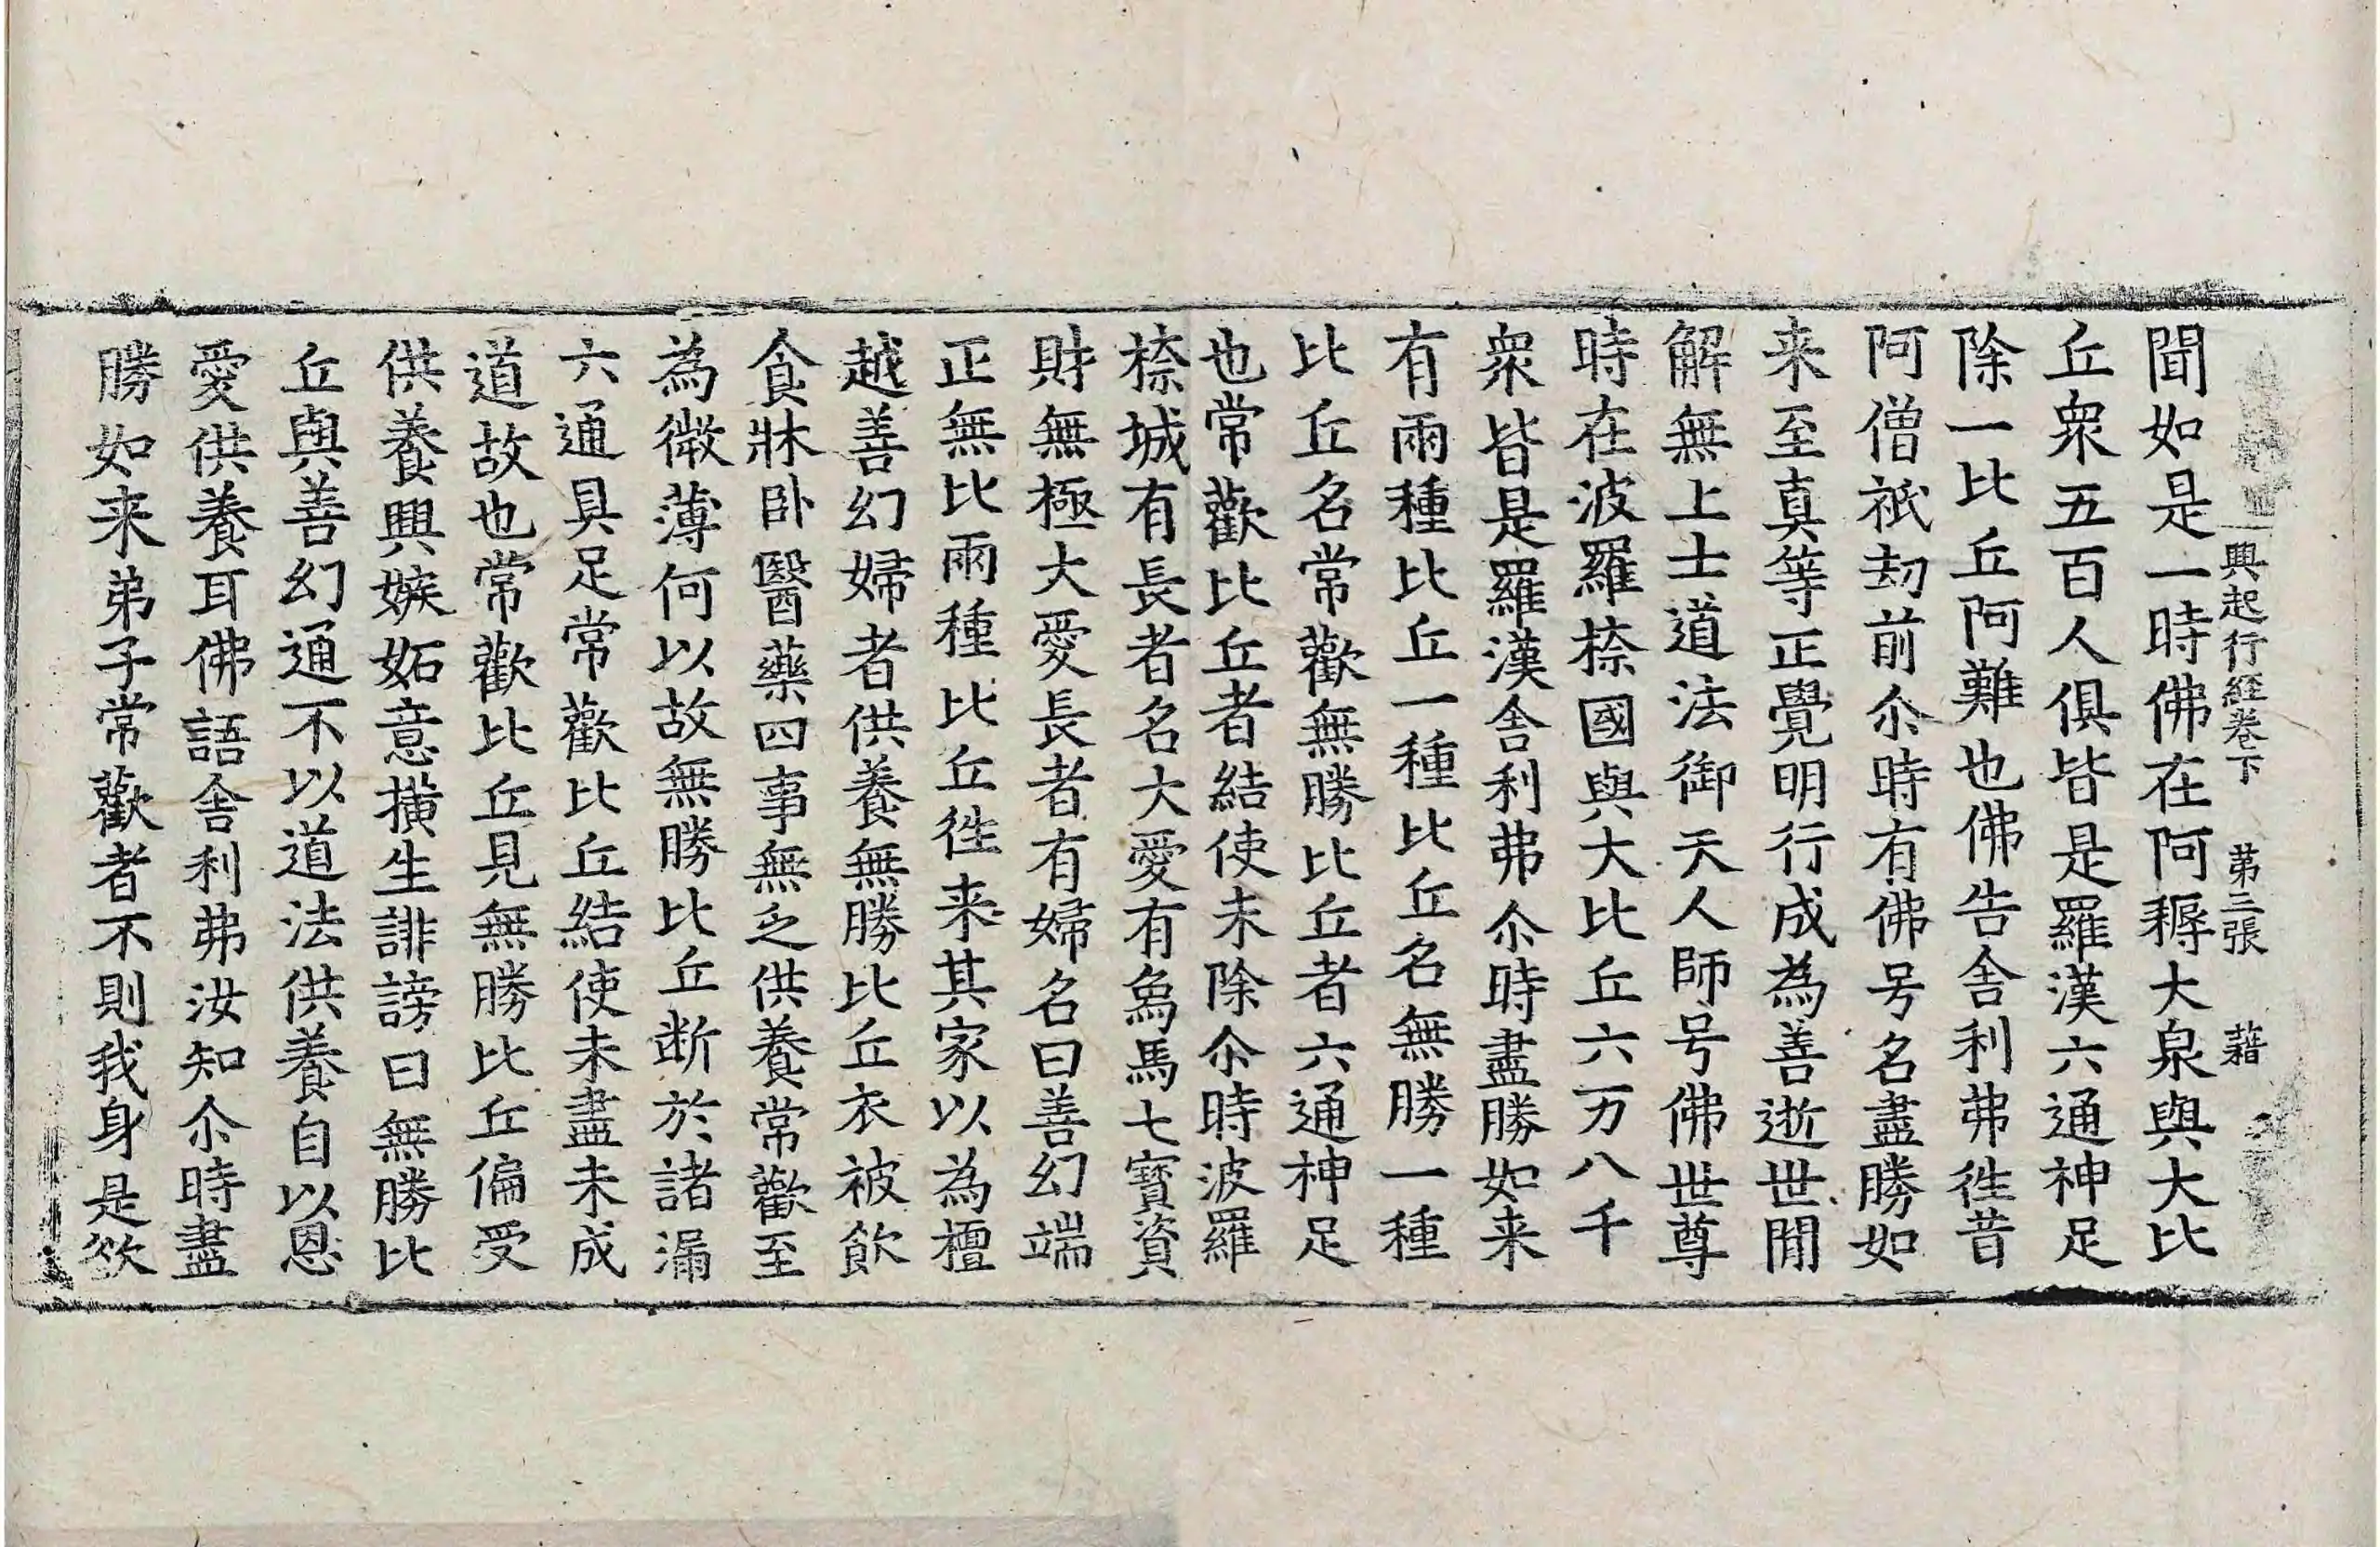 興起行経卷下 第三張 藉
聞如是一時佛在阿耨大泉與大比
丘衆五百人俱皆是羅漢六通神足
除一比丘阿難也佛告舍利弗徃昔
阿僧祇刧前尒時有佛号名盡勝如
来至真等正覺明行成為善逝世閒
解無上士道法御天人師号佛世尊
時在波羅㮈國與大比丘六万八千
衆皆是羅漢舍利弗尒時盡勝如来
有兩種比丘一種比丘名無勝一種
比丘名常歡無勝比丘者六通神足
也常歡比丘者結使未除尒時波羅
㮈城有長者名大愛有象馬七寳資
財無極大愛長者有婦名曰善幻端
正無比兩種比丘徃来其家以為檀
越善幻婦者供養無勝比丘衣被飲
食牀卧醫藥四事無乏供養常歡至
為微薄何以故無勝比丘断於諸漏
六通具足常歡比丘結使未盡未成
道故也常歡比丘見無勝比丘偏受
供養興嫉妬意撗生誹謗曰無勝比
丘與善幻通不以道法供養自以恩
愛供養耳佛語舍利弗汝知尒時盡
勝如来弟子常歡者不則我身是欲